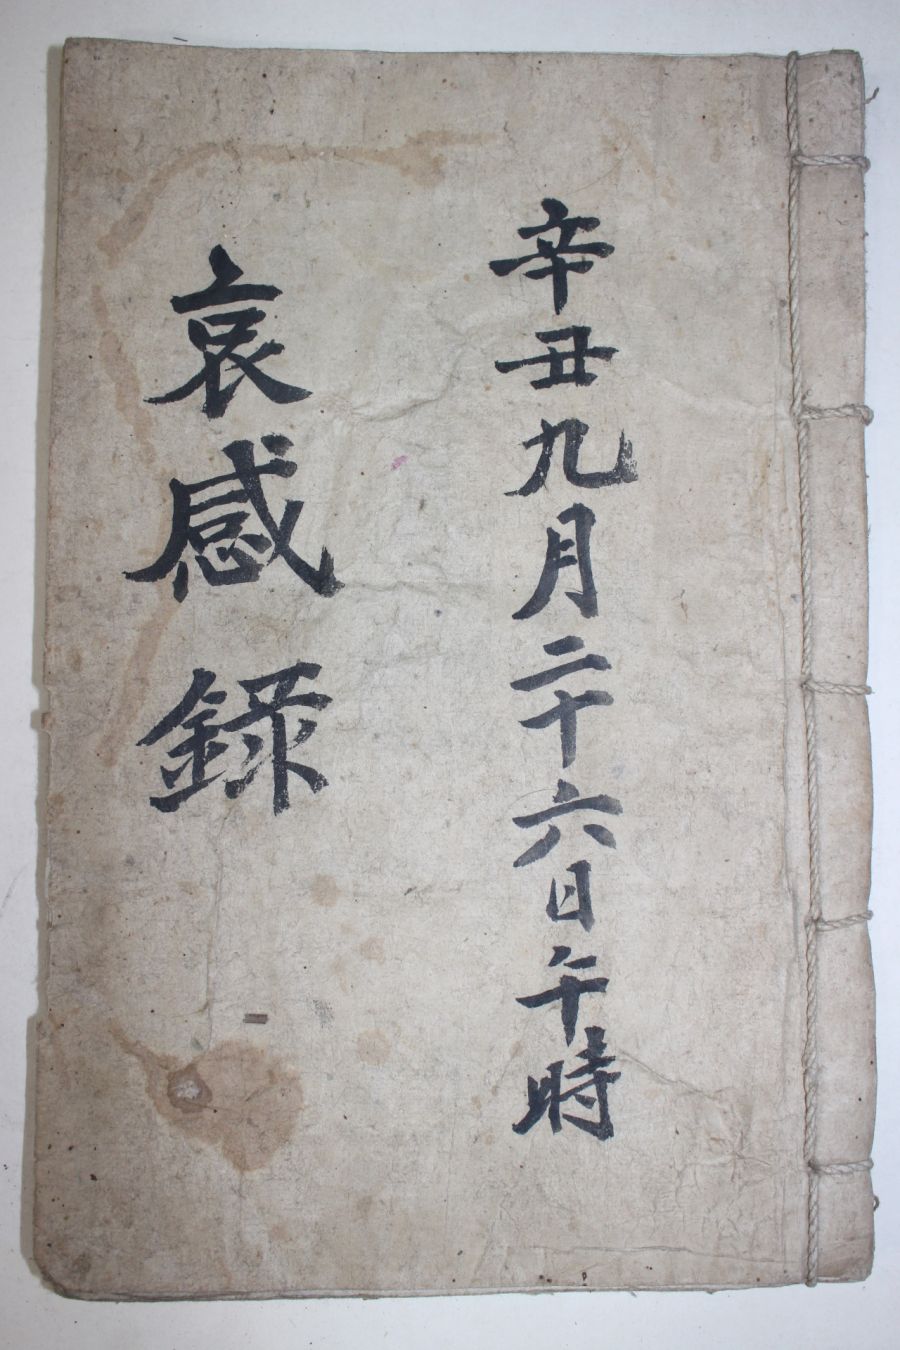 辛丑九月二十六日午時
哀感錄